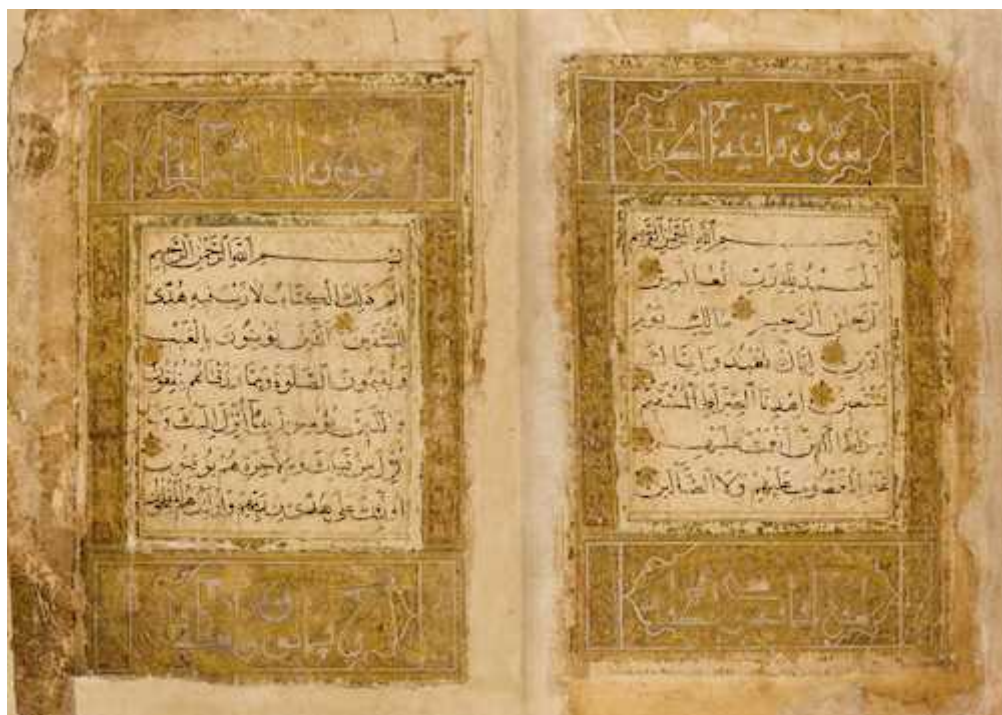 سورة فاتحة الكتا
بسم الله الرحمن الرحيم
الحمد لله رب العالمين
الرحمن الرحيم مالك يوم
الدين إياك نعبد وإياك
نستعين اهدنا الصراط المستقيم
صراط الذين أنعمت عليهم
غير المغضوب عليهم ولا الضالين
بسم الله الرحمن الرحيم
الم ذلك الكتاب لا ريب فيه هدى
للمتقين الذين يؤمنون بالغيب
ويقيمون الصلوة ومما رزقناهم ينفقون
والذين يؤمنون بما أنزل إليك وما
أنزل من قبلك وبالآخرة هم يوقنون
أولئك على هدى من ربهم وأولئك هم المفلحون